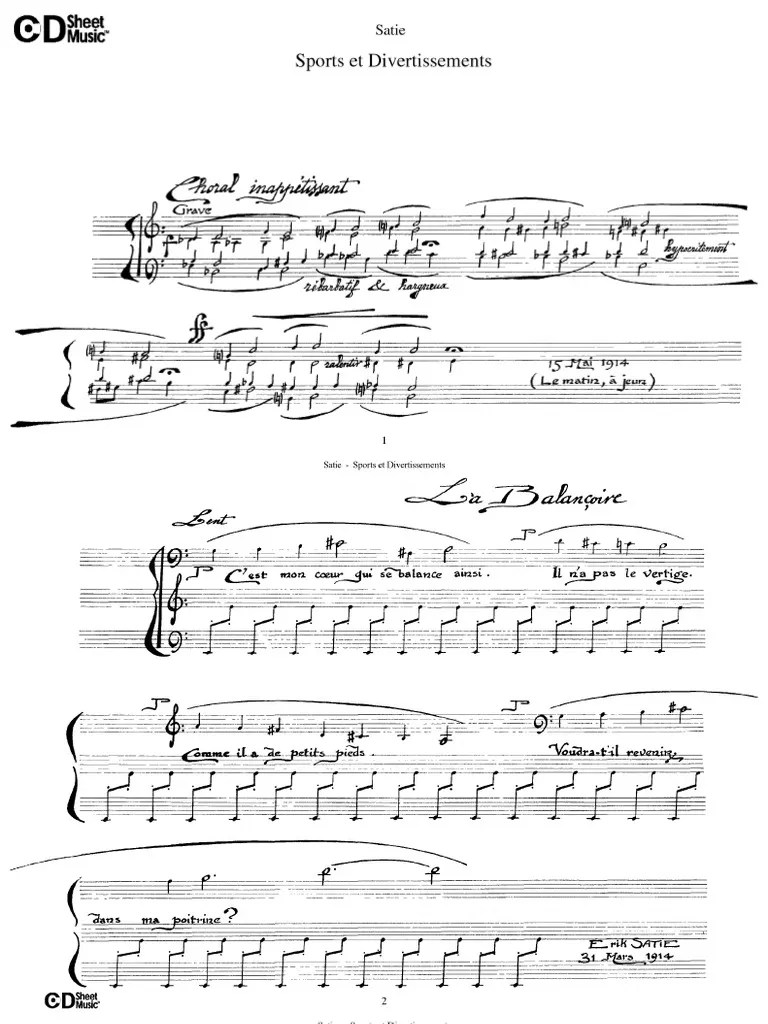 CD Sheet Music™
Satie
Sports et Divertissements
Choral inappétissant
Grave
f
hypocritement
rébarbatif & hargneux
ff
ralentir
15 Mai 1914
(Le matin, à jeun)
1
Satie - Sports et Divertissements
La Balançoire
Lent
P
P
C'est mon cœur qui se balance ainsi. Il n'a pas le vertige.
P
P
Comme il a de petits pieds. Voudra-t'il revenir,
dans ma poitrine?
Erik SATIE
31 Mars 1914
CD Sheet Music™
2